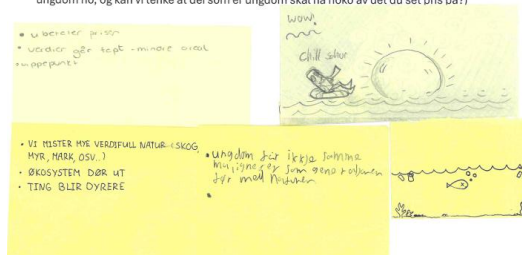 ungdom no, og kan vi tenke at dei som er ungdom skal ha noko av det du set pris på?)
• liberaler priser
• verdier går tapt - mindre areal
wow!
Chill solnur
• VI MISTER MYE VERDIFULL NATUR (SKOG,
MYR, MARK, OSV..)
• ØKOSYSTEM DØR UT
• TING BLIR DYRERE
• ungdom får ikkje samme
som generasjonen
før med naturen